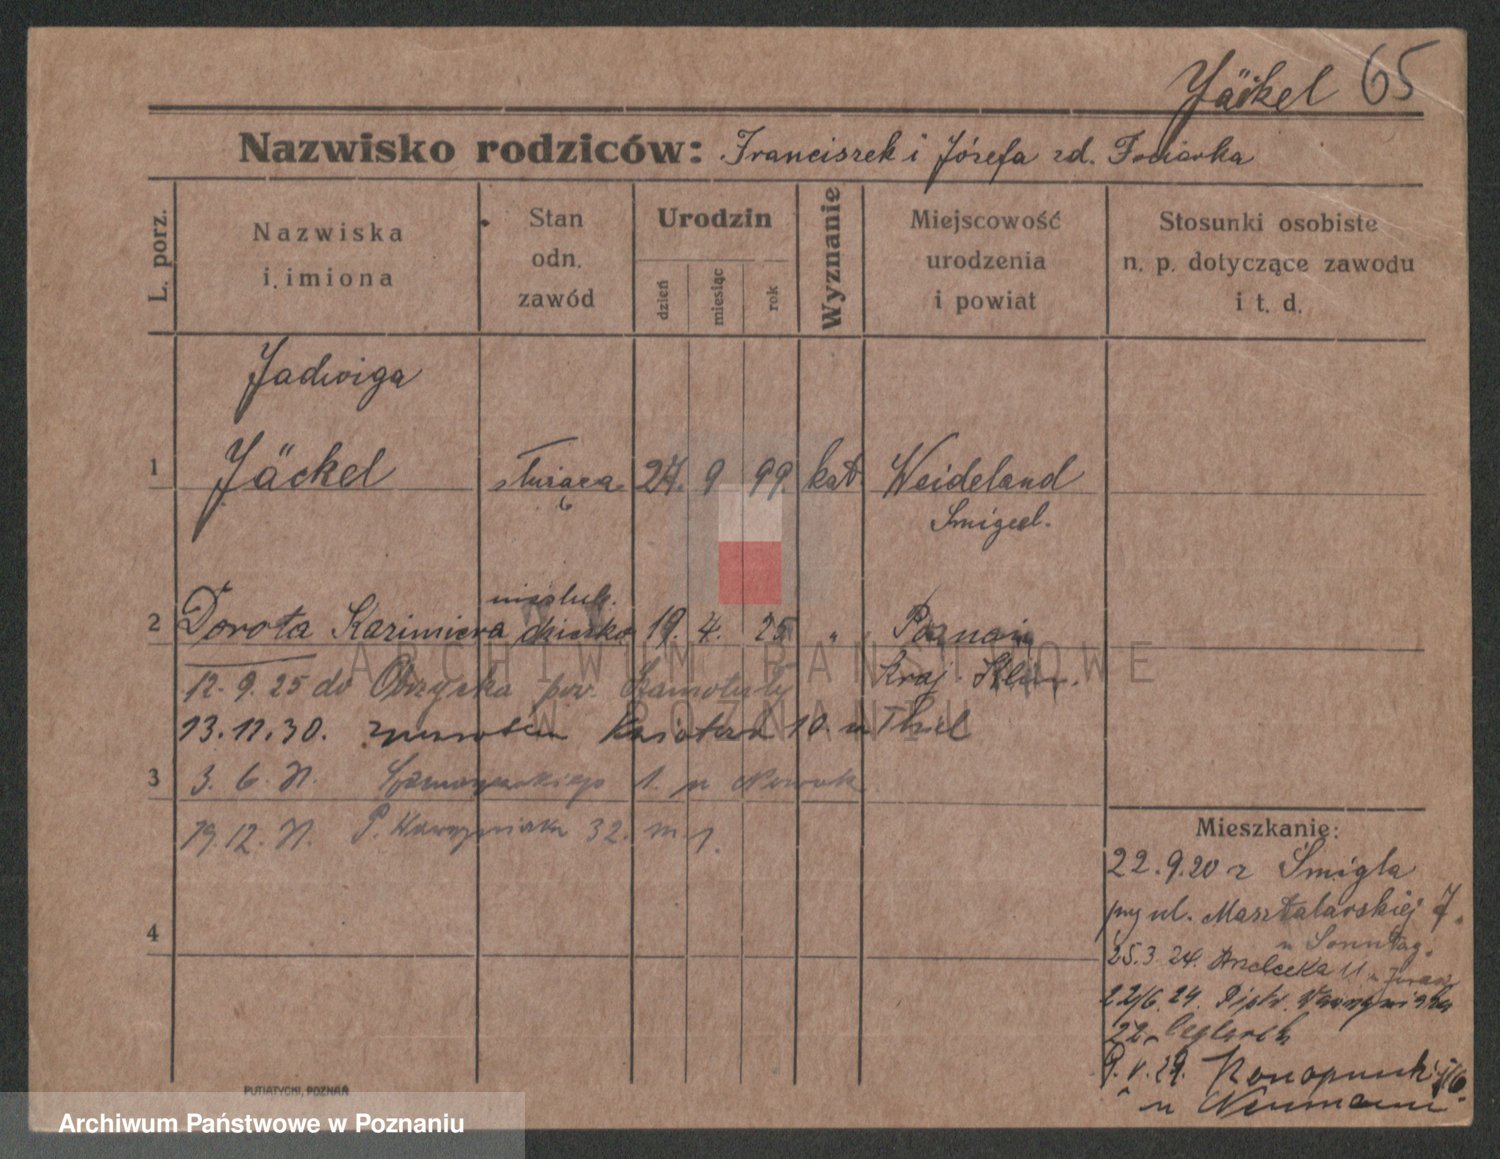 Jäckel 65
Nazwisko rodziców: Franciszek i Józefa zd.
L. porz.
Nazwiska
i imiona
Stan
odn.
zawód
Urodzin
dzień
miesiąc
rok
Wyznanie
Miejscowość
urodzenia
i powiat
Stosunki osobiste
n. p. dotyczące zawodu
i t. d.
Jadwiga
1 Jäckel służąca 27. 9 99. kat Weideland
Smigel.
nieślub.
2 Dorota Kazimiera dziecko 19. 4. 25 " Poznań
12.9.25 do Obrzycka pow. Szamotuły
13.11.30. 10.
3 3. 6. 1. u Nowak
19.12. P. Wawrzyniaka 32. m. 1.
4
Mieszkanie:
22.9.20 z Śmigla
przy ul. Masztalarskiej 7.
u Sonntag.
25.3.24. Strzelecka 11
22/6.24. Piotr. Wawrzyniaka
22
9.V.29.
u Neumann
PUTIATYCKI, POZNAŃ
ARCHIWUM PAŃSTWOWE
W POZNANIU
Archiwum Państwowe w Poznaniu